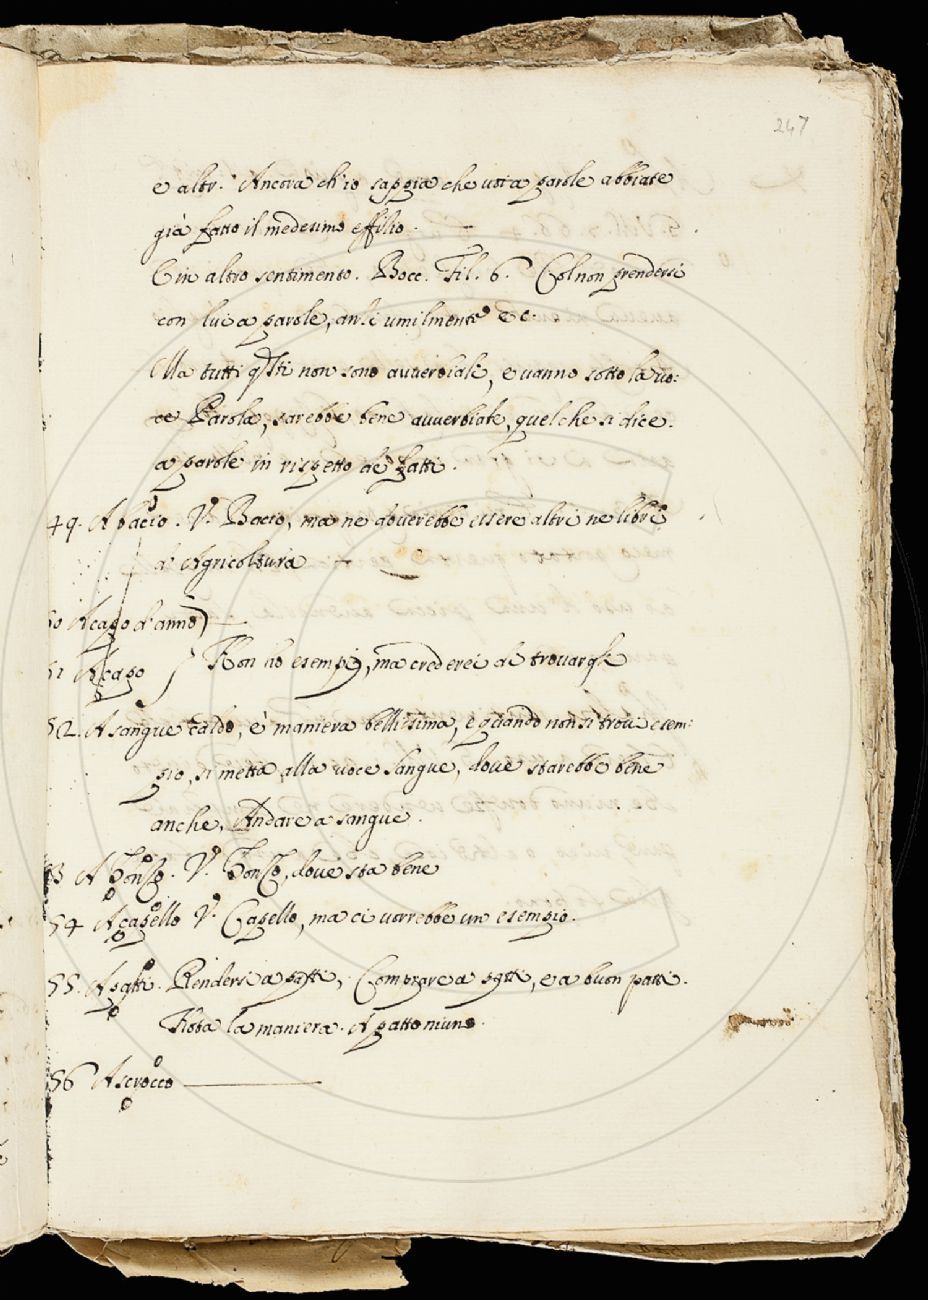 247
e altr. Ancora ch'io sappia che voi a parole abbiate
già fatto il medesimo
E in altro sentimento. Bocc. Fil. 6. Col non prendersi
con lui a parole, anzi umilmente ec.
Ma tutti qsti non sono avverbiali, e vanno sotto la vo:
ce Parola, sarebbe bene avverbiale, quel che si dice.
a parole in rispetto de fatti.
49. A bacio. V. Bacio, ma ne doverebbe essere altri ne libri
d'Agricoltura
50 A capo d'anno
51 A capo Non ho esempj, ma crederei di trovar
52. A sangue caldo, è maniera bellissima, e quando non si trovi esem:
pio, si metta alla voce Sangue, dove starebbe bene
anche, Andare a sangue.
53 A V. dove sta bene
54 A capello V. Capello, ma ci vorrebbe un esempio.
55. A patti. Rendersi a patti, Comprare a patti, e a buon patti.
Nota la maniera. A patto niuno.
56 A scrocco